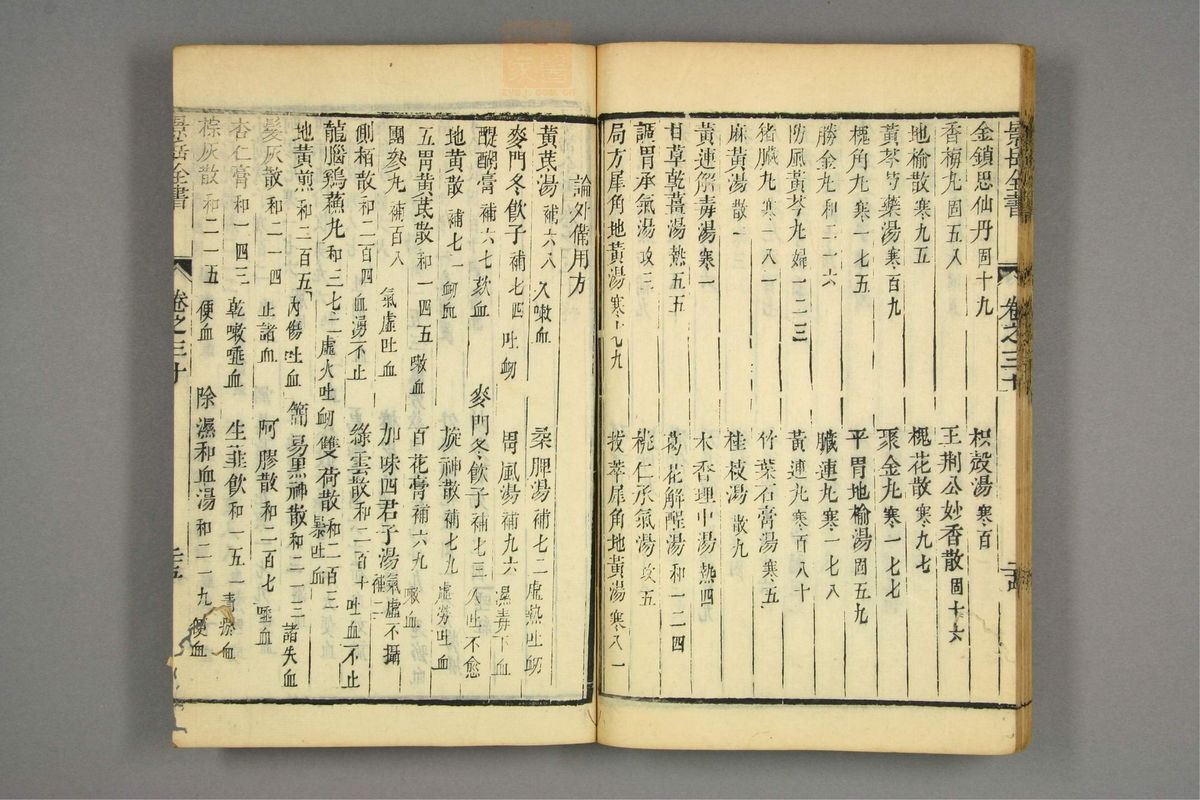 景岳全書 卷之三十
金鎖思仙丹固十九 枳殼湯寒百
香梅丸固五八 王荆公妙香散固十六
地榆散寒九五 槐花散寒九七
黃芩芍藥湯寒百九 聚金丸寒一七七
槐角丸寒一七五 平胃地榆湯固五九
勝金丸和二一六 臟連丸寒一七八
防風黃芩丸婦一二三 黃連丸寒百八十
猪臟丸寒一八一 竹葉石膏湯寒五
麻黃湯散一 桂枝湯散九
黃連解毒湯寒一 木香理中湯熱四
甘草乾薑湯熱五五 葛花解酲湯和一二四
調胃承氣湯攻三 桃仁承氣湯攻五
局方犀角地黃湯寒七九 拔萃犀角地黃湯寒八一
論外備用方
黃葚湯補六八 久嗽血 桑脾湯補七二 虛熱吐衂
麥門冬飲子補七四 吐衂 胃風湯補九六 濕毒下血
醍醐膏補六七 欬血 麥門冬飲子補七三 久吐不愈
地黃散補七一 衂血 旋神散補七九 虛勞吐血
五胃黃芪散和一四五 嗽血 百花膏補六九 嗽血
團參丸補百八 氣虛吐血 加味四君子湯補二 氣虛不攝
側栢散和二百四 血湧不止 綠雲散和二百十 吐血不止
龍腦鷄蘇丸和三七二 虛火吐衂 雙荷散和二百三 暴吐血
地黃煎和二百五 內傷吐血 簡易黑神散和二一三 諸失血
髮灰散和二一四 止諸血 阿膠散和二百七 唾血
杏仁膏和一四三 乾嗽唾血 生韮飲和一五一 青瘀血
棕灰散和二一五 便血 除濕和血湯和二一九 便血
景岳全書 卷之三十